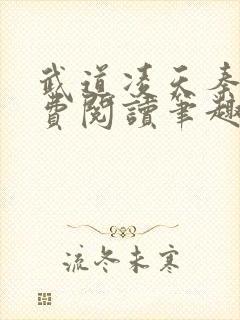 武道凌天秦
費閱讀筆趣
流冬未寒